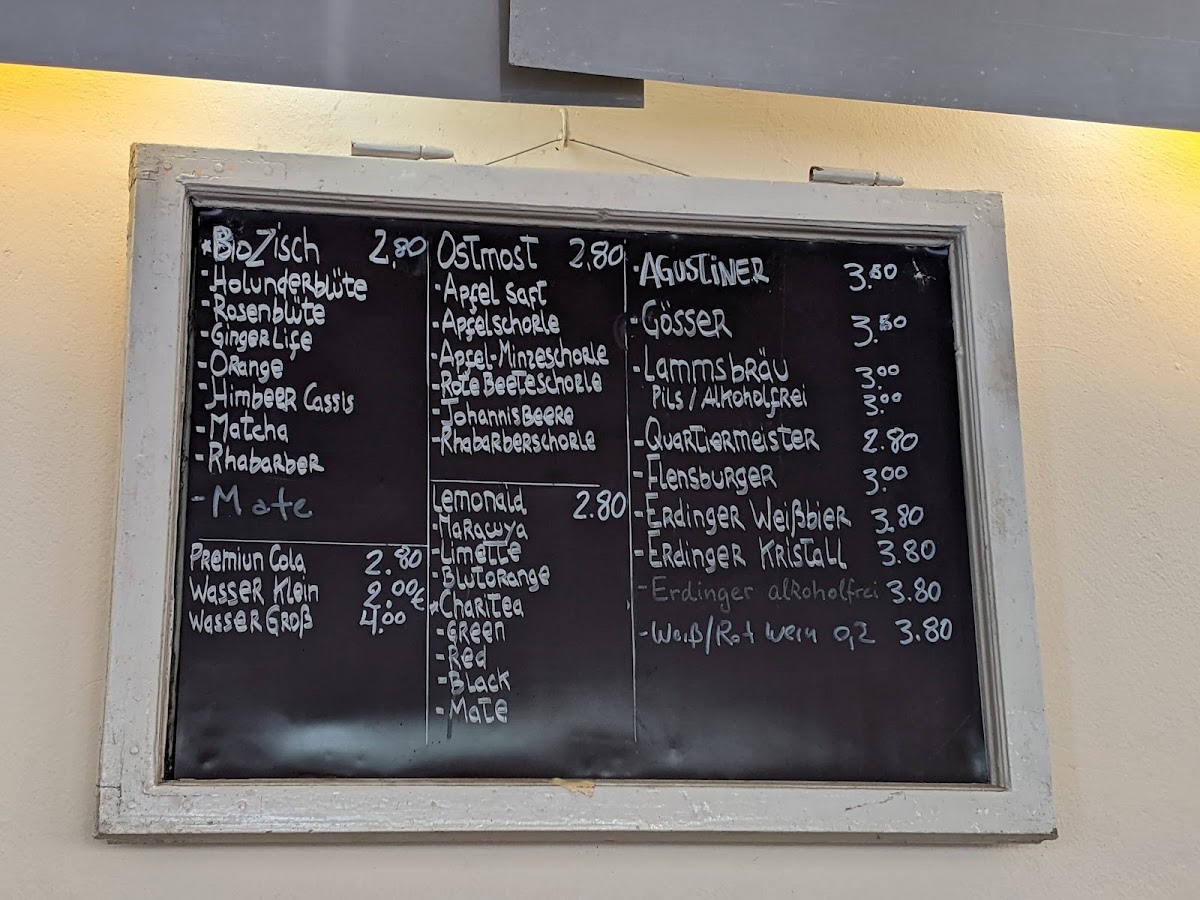 *BioZisch 2,80
-Holunderblüte
-Rosenblüte
-Ginger Life
-Orange
-Himbeer Cassis
-Matcha
-Rhabarber
-Mate
Premiun Cola 2.80
Wasser Klein 2.00€
Wasser Groß 4.00
Ostmost 2,80
-Apfel Saft
-Apfelschorle
-Apfel-Minzeschorle
-Rote Beeteschorle
-Johannisbeere
-Rhabarberschorle
Lemonaid 2.80
-Maracuya
-Limette
-Blutorange
*Charitea
-Green
-Red
-Black
-Mate
-Agustiner 3.50
-Gösser 3.50
-Lammsbräu 3.00
Pils/Alkoholfrei 3.00
-Quartiermeister 2.80
-Flensburger 3.00
-Erdinger Weißbier 3.80
-Erdinger Kristall 3.80
-Erdinger alkoholfrei 3.80
-Weiß/Rot wein 0,2 3.80